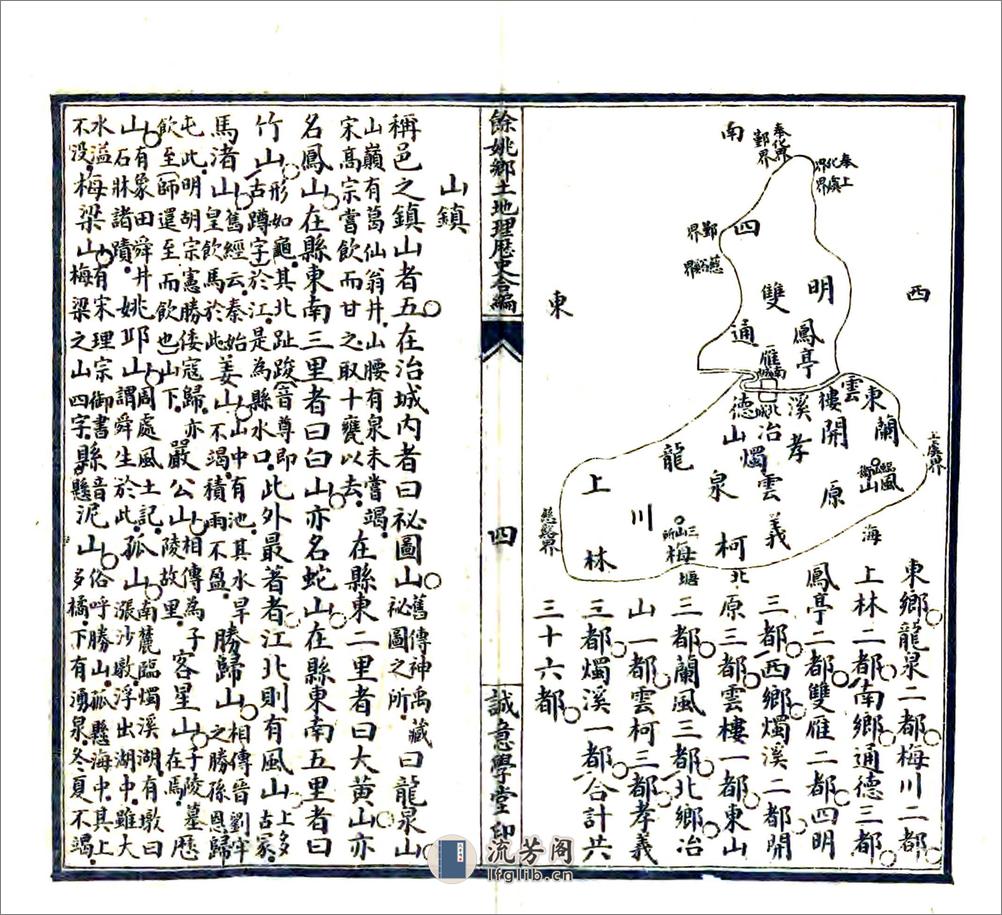 南
西
東
海
奉化界
鄞界
奉化界
上虞界
鄞界
慈谿界
四
明
雙
雁
鳳亭
通
德
南城
北城
雲
樓
東
山
蘭
風
臨山衛
上虞界
開
原
燭
溪
孝
義
冶
山
雲
柯
龍
泉
梅
川
三山所
上
林
慈谿界
北
東鄉龍泉二都梅川二都
上林二都南鄉通德三都
鳳亭二都雙雁二都四明
三都西鄉燭溪二都開
原三都雲樓一都東山
三都蘭風三都北鄉冶
山一都雲柯三都孝義
三都燭溪一都合計共
三十六都
餘姚鄉土地理歷史合編
四
誠意學堂印
山鎮
稱邑之鎮山者五在治城內者曰祕圖山舊傳神禹藏祕圖之所曰龍泉山
山巔有葛仙翁井山腰有泉未嘗竭宋高宗嘗飲而甘之取十甕以去在縣東二里者曰大黃山亦
名鳳山在縣東南三里者曰白山亦名蛇山在縣東南五里者曰
竹山形如龜其北趾踆(音尊即古蹲字)於江是為縣水口此外最著者江北則有風山上多古冢
馬渚山舊經云秦始皇飲馬於此姜山山中有池其水旱不竭積雨不盈勝歸山相傳晉劉牢之勝孫恩歸
屯此明胡宗憲勝倭寇歸亦飲至(師還至而飲也)山下嚴公山相傳為子陵故里客星山子陵墓在焉歷
山有象田舜井石牀諸蹟姚邱山周處風土記謂舜生於此孤山南麓臨燭溪湖有墩曰漲沙墩浮出湖中雖大
水溢不沒梅梁山有宋理宗御書梅梁之山四字縣音懸泥山俗呼勝山孤懸海中其上多橘下有湧泉冬夏不竭
流芳阁
lfglib.cn